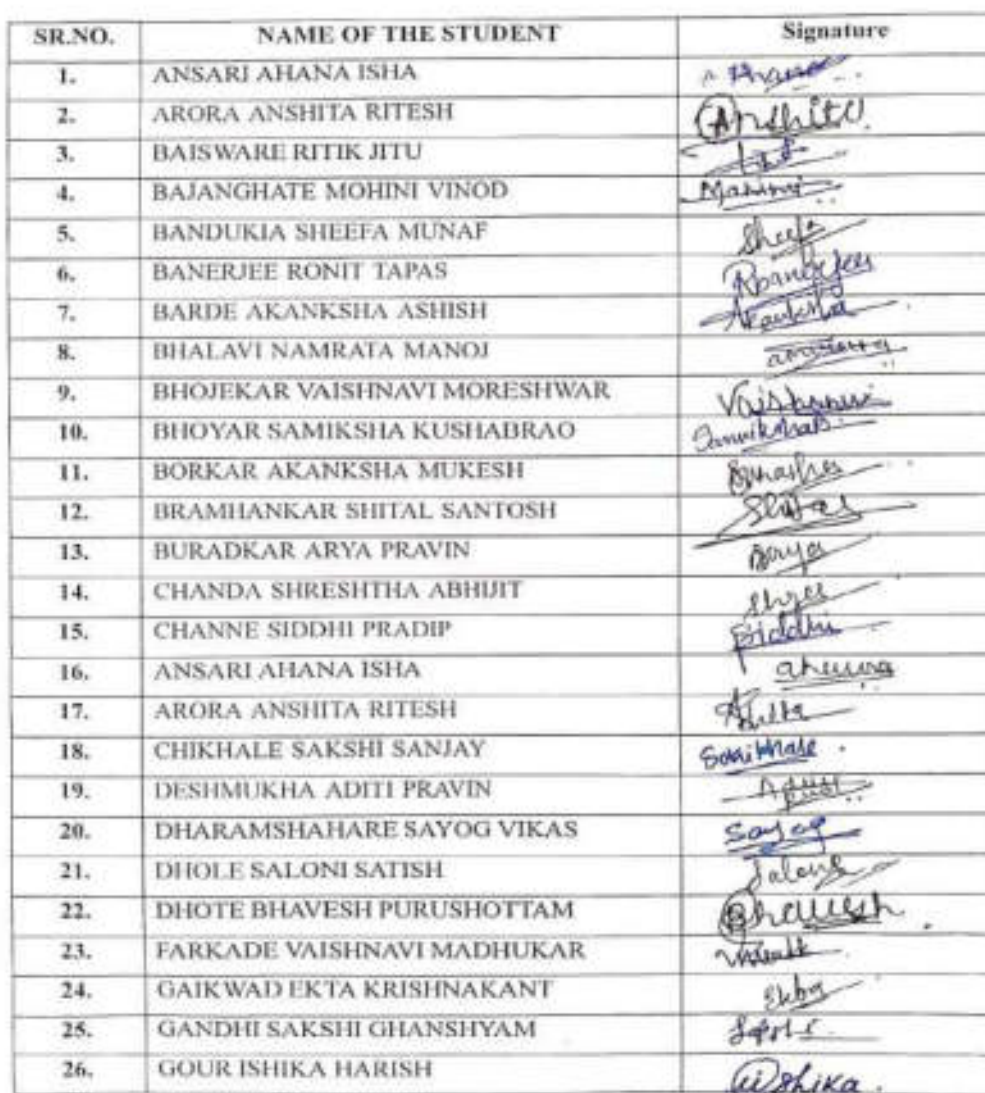 SR.NO. NAME OF THE STUDENT Signature
1. ANSARI AHANA ISHA
2. ARORA ANSHITA RITESH Anshita
3. BAISWARE RITIK JITU
4. BAJANGHATE MOHINI VINOD
5. BANDUKIA SHEEFA MUNAF Sheefa
6. BANERJEE RONIT TAPAS RBanerjee
7. BARDE AKANKSHA ASHISH Akanksha
8. BHALAVI NAMRATA MANOJ
9. BHOJEKAR VAISHNAVI MORESHWAR Vaishnavi
10. BHOYAR SAMIKSHA KUSHABRAO
11. BORKAR AKANKSHA MUKESH
12. BRAMHANKAR SHITAL SANTOSH
13. BURADKAR ARYA PRAVIN
14. CHANDA SHRESHTHA ABHIJIT
15. CHANNE SIDDHI PRADIP Siddhi
16. ANSARI AHANA ISHA
17. ARORA ANSHITA RITESH
18. CHIKHALE SAKSHI SANJAY
19. DESHMUKHA ADITI PRAVIN
20. DHARAMSHAHARE SAYOG VIKAS Sayog
21. DHOLE SALONI SATISH
22. DHOTE BHAVESH PURUSHOTTAM Bhavesh
23. FARKADE VAISHNAVI MADHUKAR
24. GAIKWAD EKTA KRISHNAKANT
25. GANDHI SAKSHI GHANSHYAM
26. GOUR ISHIKA HARISH